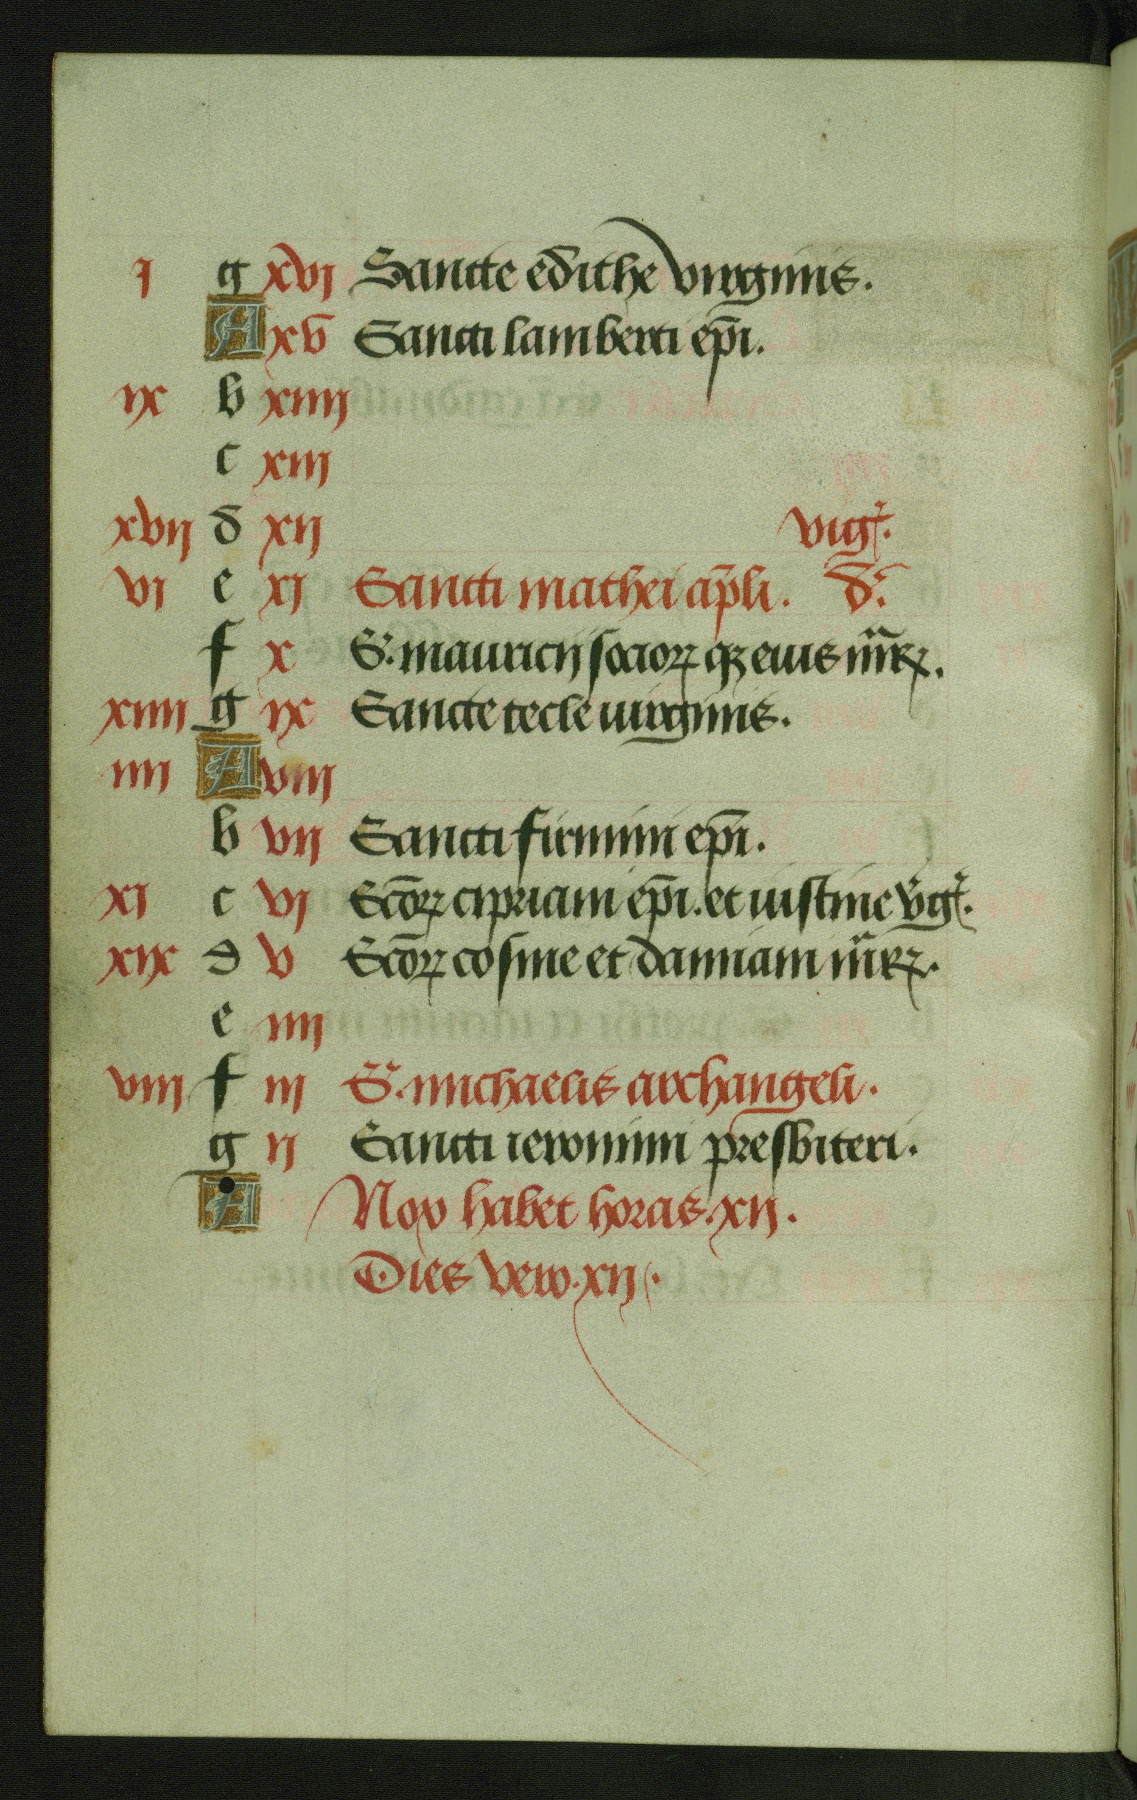 j g xvj Sancte edithe virginis.
A xv Sancti lamberti ep̄i.
ix b xiiij
c xiij
xvij d xij vigˀ.
vj e xj Sancti mathei ap̄li. d.
f x S. mauricij socioꝝ qꝫ eius m̄rꝝ.
xiiij g ix Sancte tecle uirginis.
iiij A viij
b vij Sancti firmini ep̄i.
xj c vj Sc̄oꝝ cipriani ep̄i. et iustine v̄gˀ.
xix d v Sc̄oꝝ cosme et damiani m̄rꝝ.
e iiij
viij f iij S. michaelis archangeli.
g ij Sancti ieronimi presbiteri.
A Nox habet horas. xij.
Dies vero. xij.